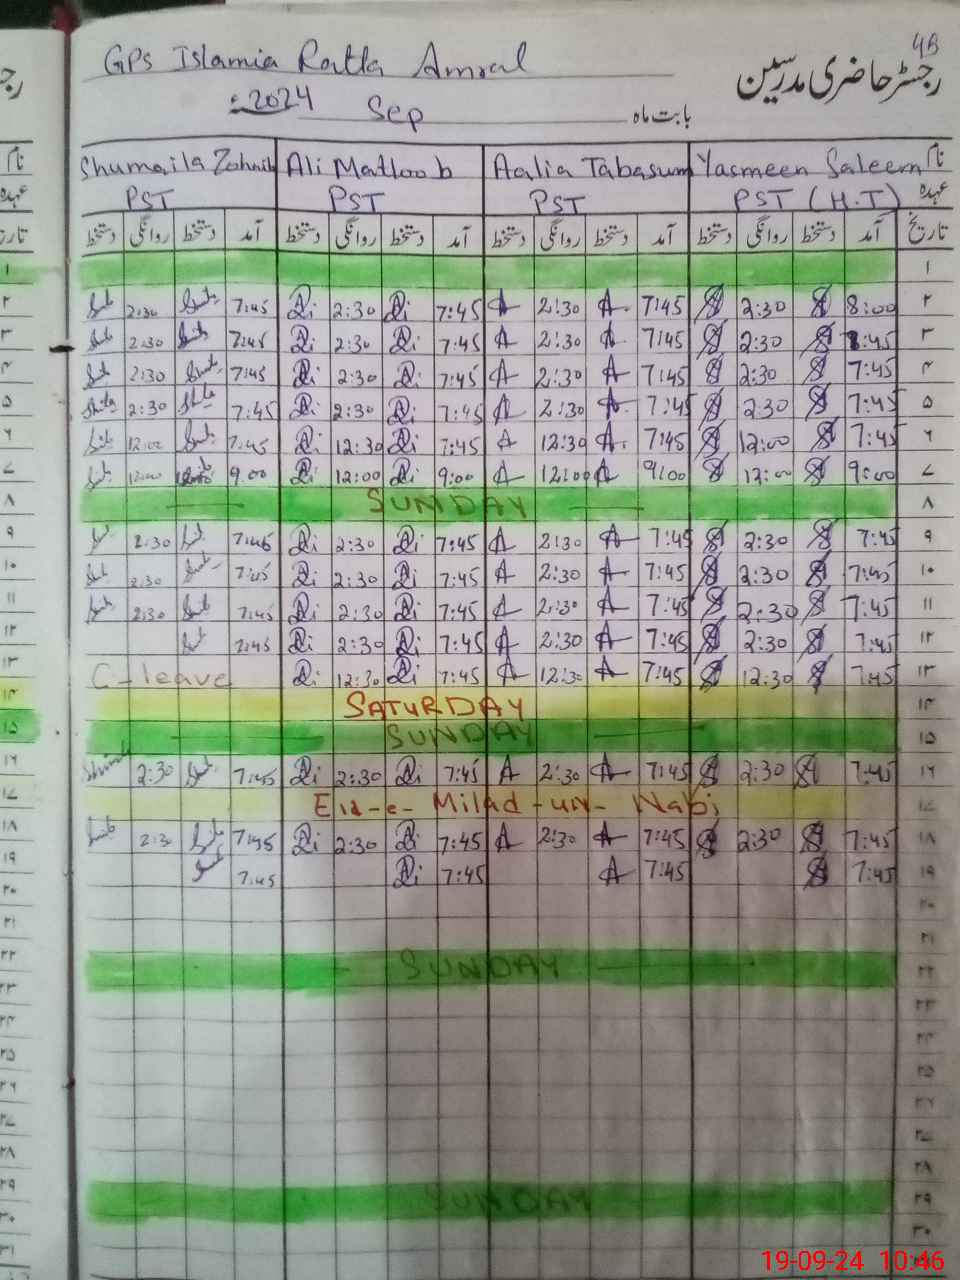 4B
GPS Islamia Ratta Amral
رجسٹر حاضری مدرسین
2024 Sep بابت ماہ
Shumaila Zohaib Ali Matloob Aalia Tabasum Yasmeen Saleem نام
PST PST PST PST (H.T) عہدہ
دستخط روانگی دستخط آمد دستخط روانگی دستخط آمد دستخط روانگی دستخط آمد دستخط روانگی دستخط آمد تاریخ
۱
2:30 7:45 2:30 7:45 2:30 A 7:45 2:30 8:00 ۲
2:30 7:45 2:30 7:45 A 2:30 A 7:45 2:30 :45 ۳
2:30 7:45 2:30 7:45 A 2:30 A 7:45 2:30 7:45 ۴
2:30 7:45 2:30 7:45 A 2:30 A 7:45 2:30 7:45 ۵
12:00 7:45 12:30 7:45 A 12:30 A 7:45 12:00 7:45 ۶
12:00 9:00 12:00 9:00 A 12:00 A 9:00 12:00 9:00 ۷
SUNDAY ۸
2:30 7:45 2:30 7:45 A 2:30 A 7:45 2:30 7:45 ۹
2:30 7:45 2:30 7:45 A 2:30 A 7:45 2:30 7:45 ۱۰
2:30 7:45 2:30 7:45 A 2:30 A 7:45 2:30 7:45 ۱۱
7:45 2:30 7:45 A 2:30 A 7:45 2:30 7:45 ۱۲
C-leave 12:30 7:45 A 12:30 A 7:45 12:30 7:45 ۱۳
SATURDAY ۱۴
SUNDAY ۱۵
2:30 7:45 2:30 7:45 A 2:30 A 7:45 2:30 7:45 ۱۶
Eid-e-Milad-un-Nabi ۱۷
2:30 7:45 2:30 7:45 A 2:30 A 7:45 2:30 7:45 ۱۸
7:45 7:45 A 7:45 7:45 ۱۹
۲۰
۲۱
SUNDAY ۲۲
۲۳
۲۴
۲۵
۲۶
۲۷
۲۸
SUNDAY ۲۹
۳۰
19-09-24 10:46